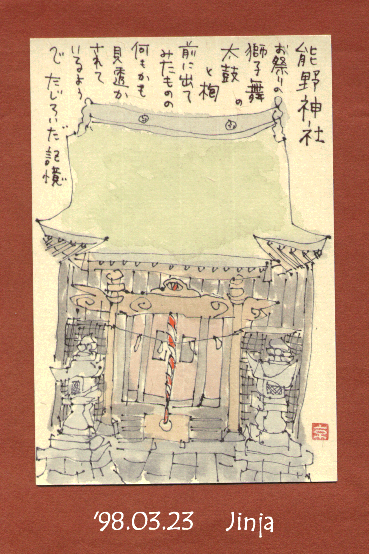 能野神社
お祭りの
獅子舞の
太鼓
と
前に出て
みたものの
何もかも
見透か
されて
いるよう
でたじろいだ記憶
'98.03.23 Jinja